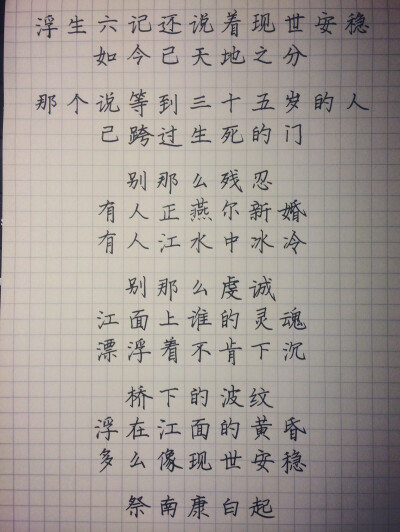 浮生六记还说着现世安稳
如今已天地之分
那个说等到三十五岁的人
已跨过生死的门
别那么残忍
有人正燕尔新婚
有人江水中冰冷
别那么虔诚
江面上谁的灵魂
漂浮着不肯下沉
桥下的波纹
浮在江面的黄昏
多么像现世安稳
祭南康白起